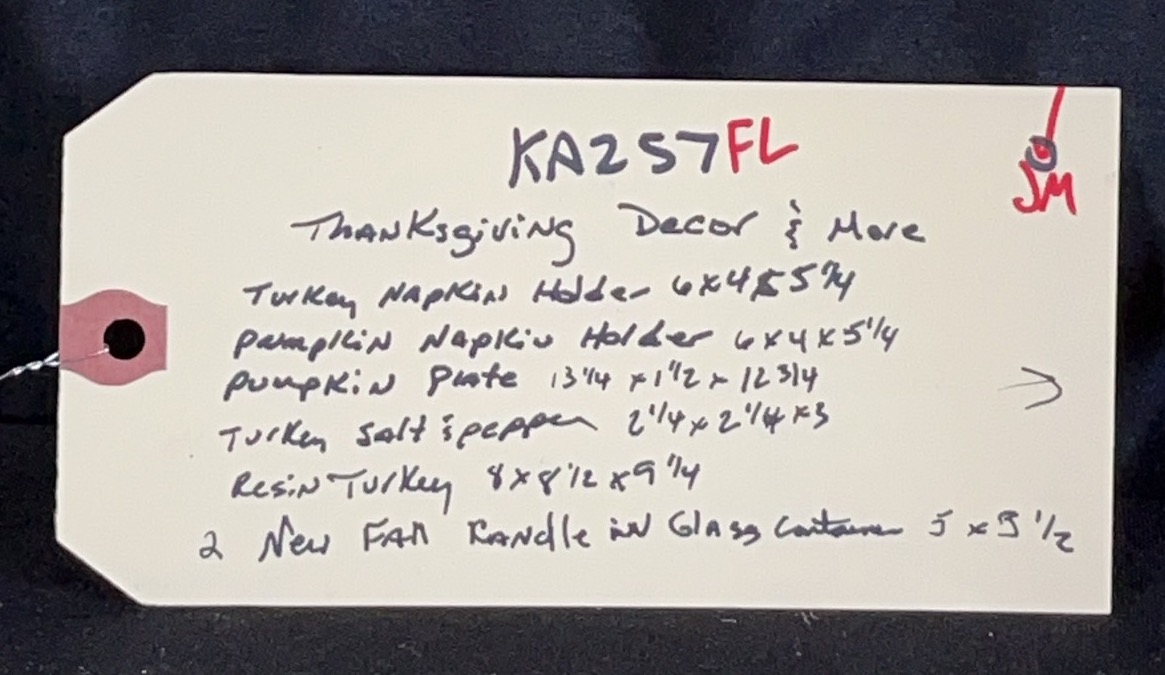 KA257FL
JM
Thanksgiving Decor & More
Turkey Napkin Holder 6x4x5 1/4
Pumpkin Napkin Holder 6x4x5 1/4
Pumpkin Plate 13 1/4 x 1 1/2 x 12 3/4
Turkey Salt & pepper 2 1/4 x 2 1/4 x 3
Resin Turkey 8 x 8 1/2 x 9 1/4
2 New Fall Candle in Glass Container 5 x 5 1/2